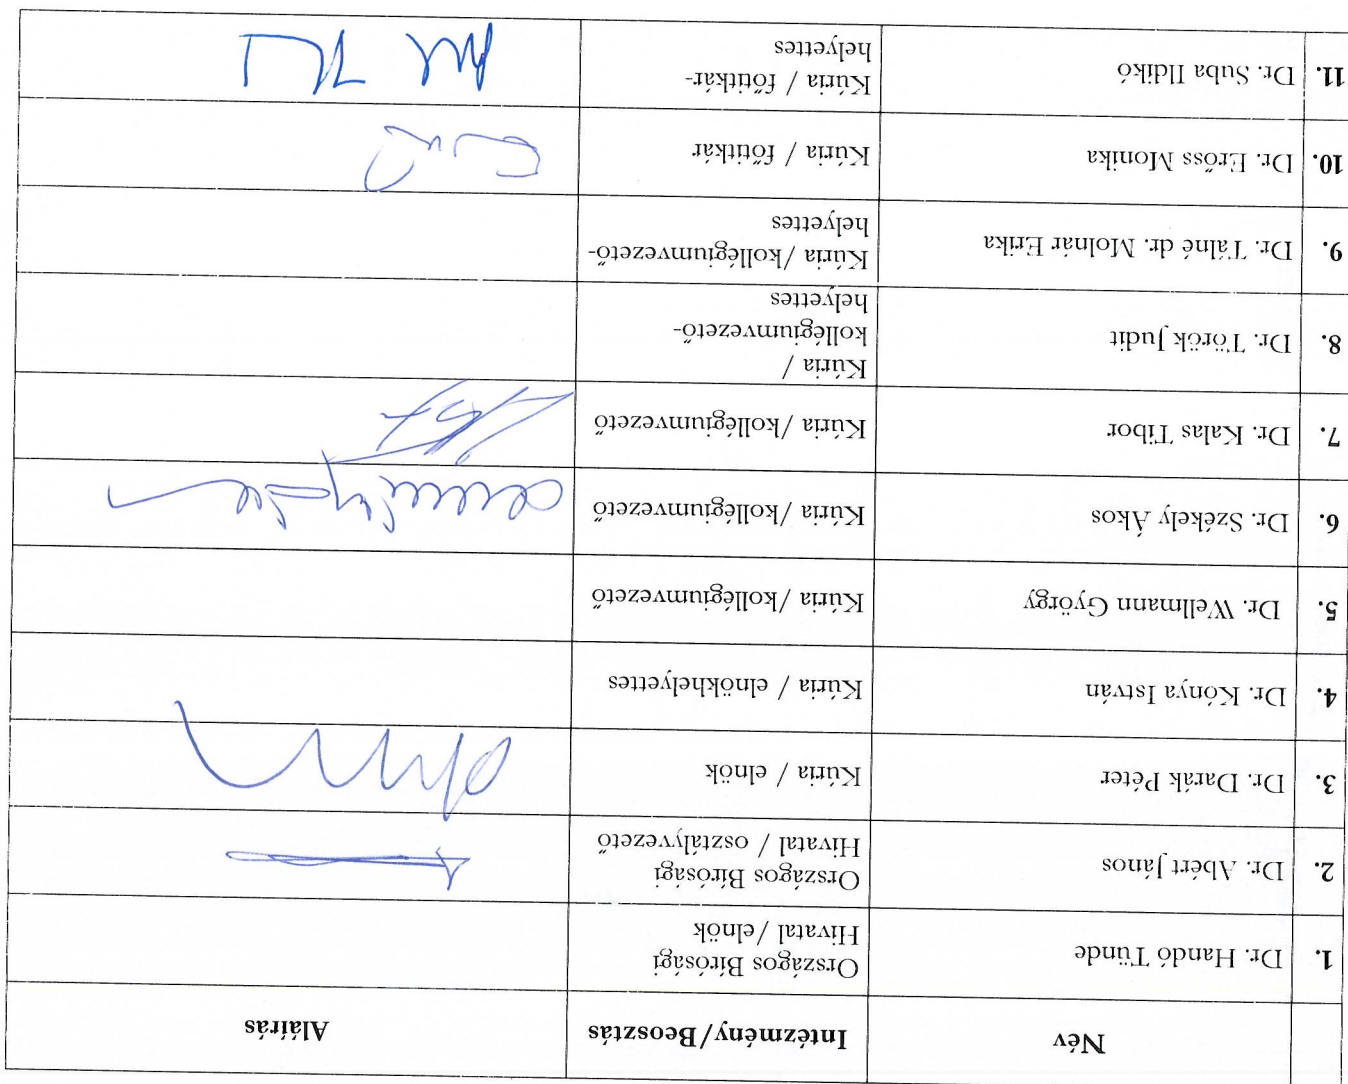 Név Intézmény/Beosztás Aláírás
1. Dr. Handó Tünde Országos Bírósági
Hivatal/elnök
2. Dr. Ábért János Országos Bírósági
Hivatal / osztályvezető
3. Dr. Darák Péter Kúria / elnök
4. Dr. Kónya István Kúria / elnökhelyettes
5. Dr. Wellmann György Kúria /kollégiumvezető
6. Dr. Székely Ákos Kúria /kollégiumvezető
7. Dr. Kalas Tibor Kúria /kollégiumvezető
8. Dr. Török Judit Kúria /
kollégiumvezető-
helyettes
9. Dr. Tálné dr. Molnár Erika Kúria /kollégiumvezető-
helyettes
10. Dr. Erőss Monika Kúria / főtitkár
11. Dr. Suba Ildikó Kúria / főtitkár-
helyettes